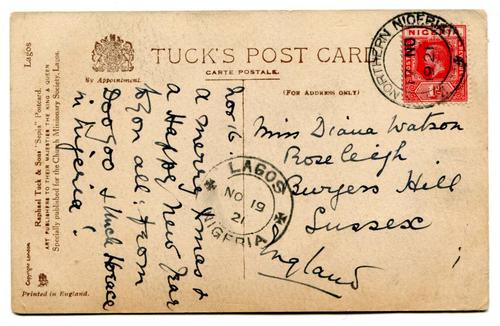 TUCK'S POST CARD
CARTE POSTALE
By Appointment.
(FOR ADDRESS ONLY)
Lagos
Raphael Tuck & Sons "Sepia" Postcard.
ART PUBLISHERS TO THEIR MAJESTIES THE KING & QUEEN
Specially published for the Church Missionary Society, Lagos.
Copyright London
Printed in England.
Nov 16.
a merry Xmas &
a Happy New Year
to you all: from
& Uncle Horace
in Nigeria!
Miss Diana Watson
Roseleigh
Burgess Hill
Sussex
England
NORTHERN NIGERIA
NO
21
LAGOS
NO 19
21
NIGERIA